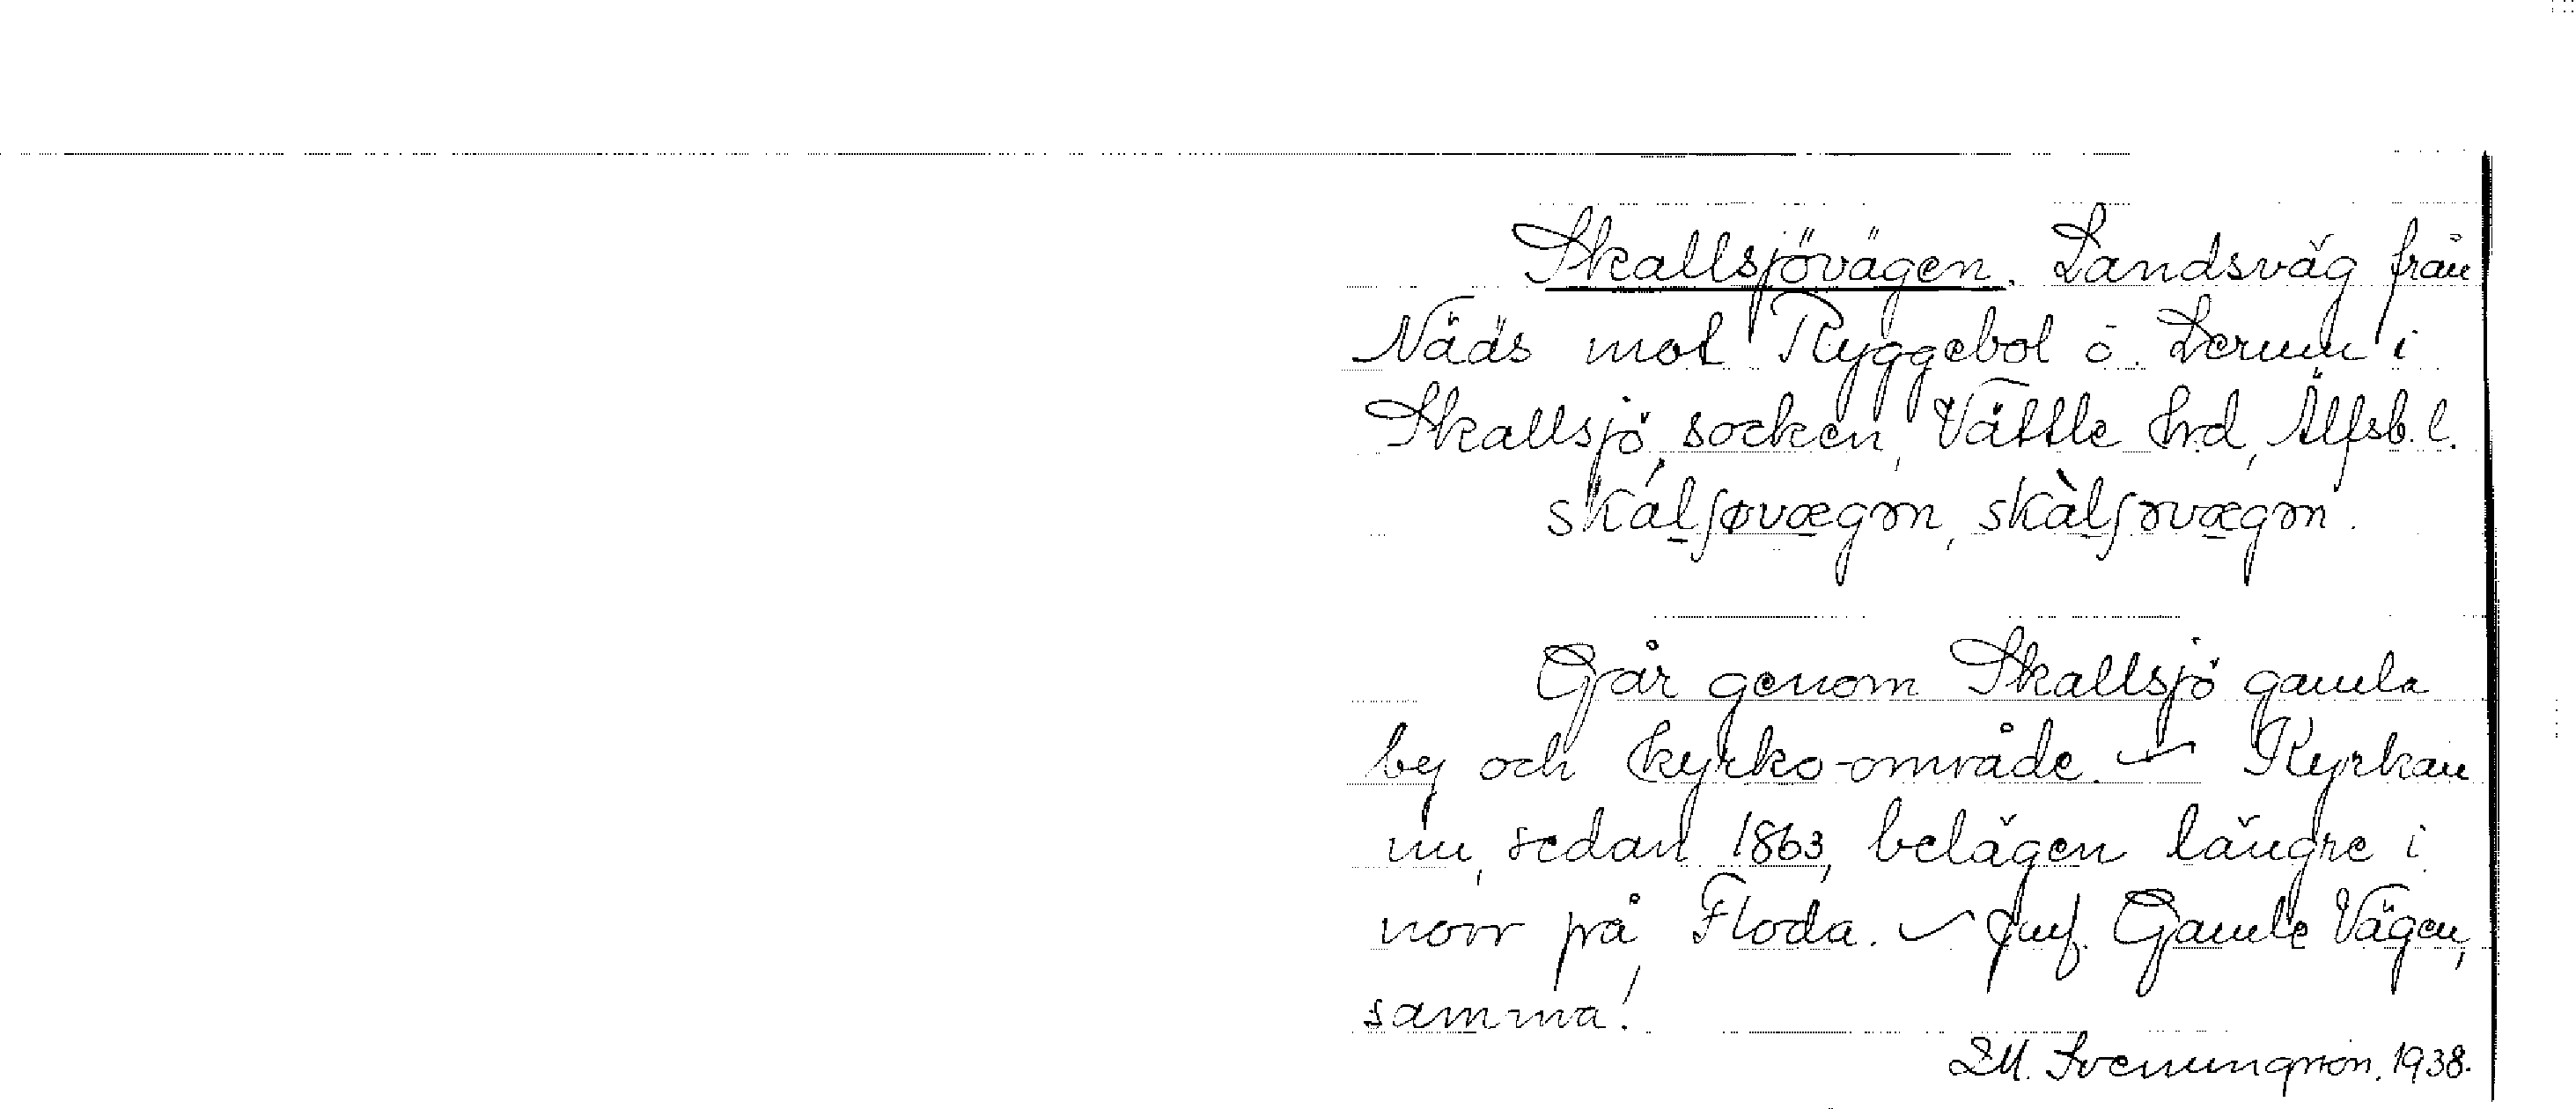 Skallsjövägen. Landsväg från
Nääs mot Ryggebol ö. Lerum i
Skallsjö socken, Vättle hrd, Älfsb. l.
skál̠ʃøvæ̠gən, skàl̠ʃəvæ̠gən.
Går genom Skallsjö gamla
by och kyrko-område. ~ Kyrkan
nu, sedan 1863, belägen längre i
norr på Floda. ~ Jmf. Gamle Vägen,
samma!
L M. Svenungsson. 1938.